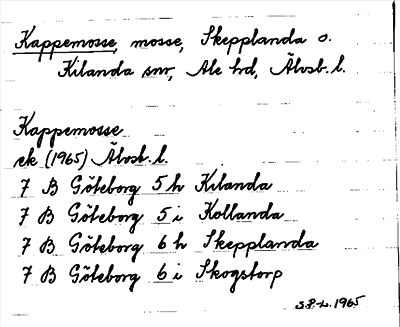 Kappemosse, mosse, Skepplanda o.
Kilanda snr, Ale hd, Älvsb. l.
Kappemosse
ek (1965) Älvsb. l.
7 B Göteborg 5 h Kilanda
7 B Göteborg 5 i Kollanda
7 B Göteborg 6 h Skepplanda
7 B Göteborg 6 i Skogstorp
S.P-L. 1965